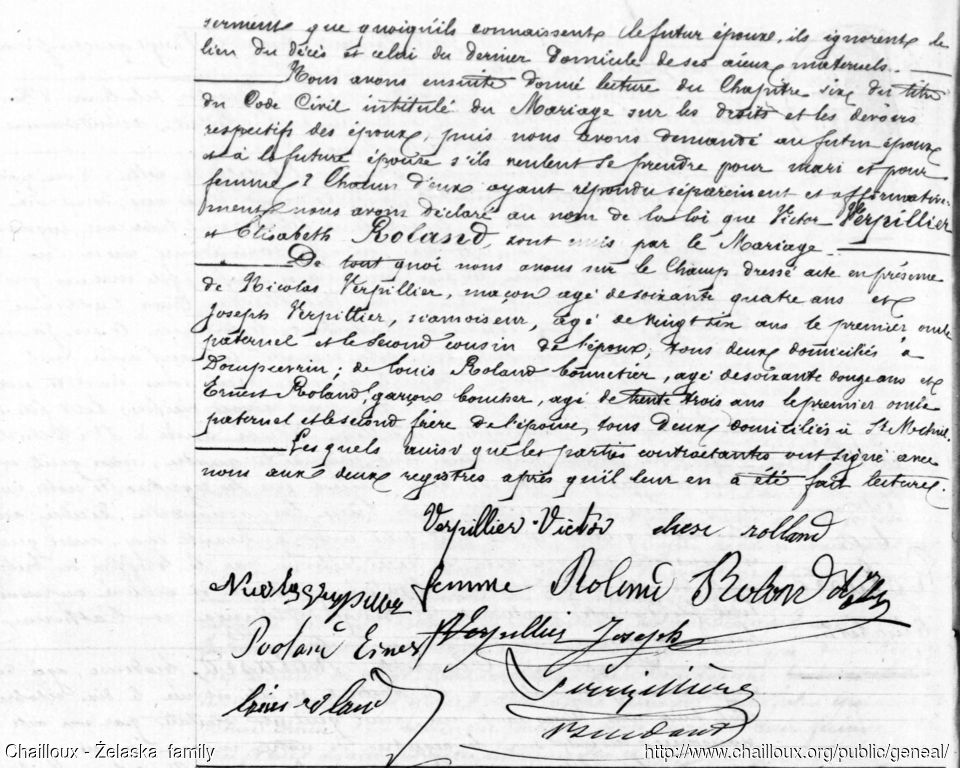 serment que quoiqu'ils connaissent le futur époux, ils ignorent le
lieu du décès et celui du dernier Domicile de ses aieux maternels.
Nous avons ensuite donné lecture du Chapitre six du titre
du Code Civil intitulé du Mariage sur les droits et les devoirs
respectifs des époux, puis nous avons demandé au futur époux
et à la future épouse s'ils veulent se prendre pour mari et pour
femme ? Chacun d'eux ayant répondu séparément et affirmative-
ment, nous avons déclaré au nom de la loi que Victor Verpillier
et Elisabeth Roland, sont unis par le Mariage
De tout quoi nous avons sur le Champ dressé acte en présence
de Nicolas Verpillier maçon agé de soixante quatre ans et
Joseph Verpillier, siamoiseur, agé de vingt six ans le premier oncle
paternel et le second cousin de l'époux, tous deux domiciliés à
Dompcevrin ; de Louis Roland bonnetier, agé de soixante douze ans et
Ernest Roland, garçon boucher, agé de trente trois ans le premier oncle
paternel et le second frère de l'épouse, tous deux domiciliés à St Mihiel.
Lesquels ainsi que les parties contractantes ont signé avec
nous aux deux registres après qu'il leur en a été fait lecture.
Verpillier Victor rolland
femme Roland Roland
Verpillier Joseph
Ernest